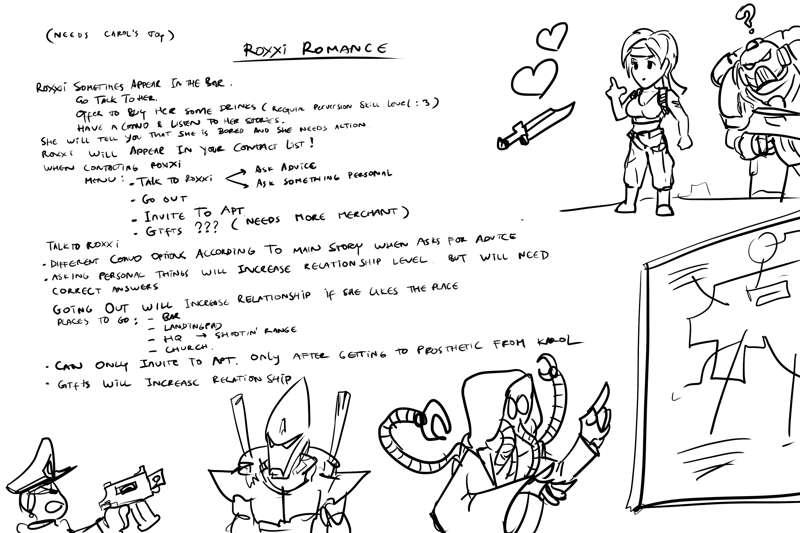 (NEEDS CAROL'S JOB)
ROXXI ROMANCE
ROXXI SOMETIMES APPEAR IN THE BAR.
GO TALK TO HER.
OFFER TO BUY HER SOME DRINKS (REQUIRE PERVERSION SKILL LEVEL : 3)
HAVE A CONVO & LISTEN TO HER STORIES.
SHE WILL TELL YOU THAT SHE IS BORED AND SHE NEEDS ACTION
ROXXI WILL APPEAR IN YOUR CONTACT LIST!
WHEN CONTACTING ROXXI
MENU : - TALK TO ROXXI
ASK ADVICE
ASK SOMETHING PERSONAL
- GO OUT
- INVITE TO APT
- GIFTS ??? (NEEDS MORE MERCHANT)
TALK TO ROXXI
- DIFFERENT CONVO OPTIONS ACCORDING TO MAIN STORY WHEN ASKS FOR ADVICE
- ASKING PERSONAL THINGS WILL INCREASE RELATIONSHIP LEVEL BUT WILL NEED
CORRECT ANSWERS
GOING OUT WILL INCREASE RELATIONSHIP IF SHE LIKES THE PLACE
PLACES TO GO : - BAR
- LANDINGPAD
- HQ → SHOOTIN' RANGE
- CHURCH.
- CAN ONLY INVITE TO APT. ONLY AFTER GETTING TO PROSTHETIC FROM KAROL
- GIFTS WILL INCREASE RELATIONSHIP
?